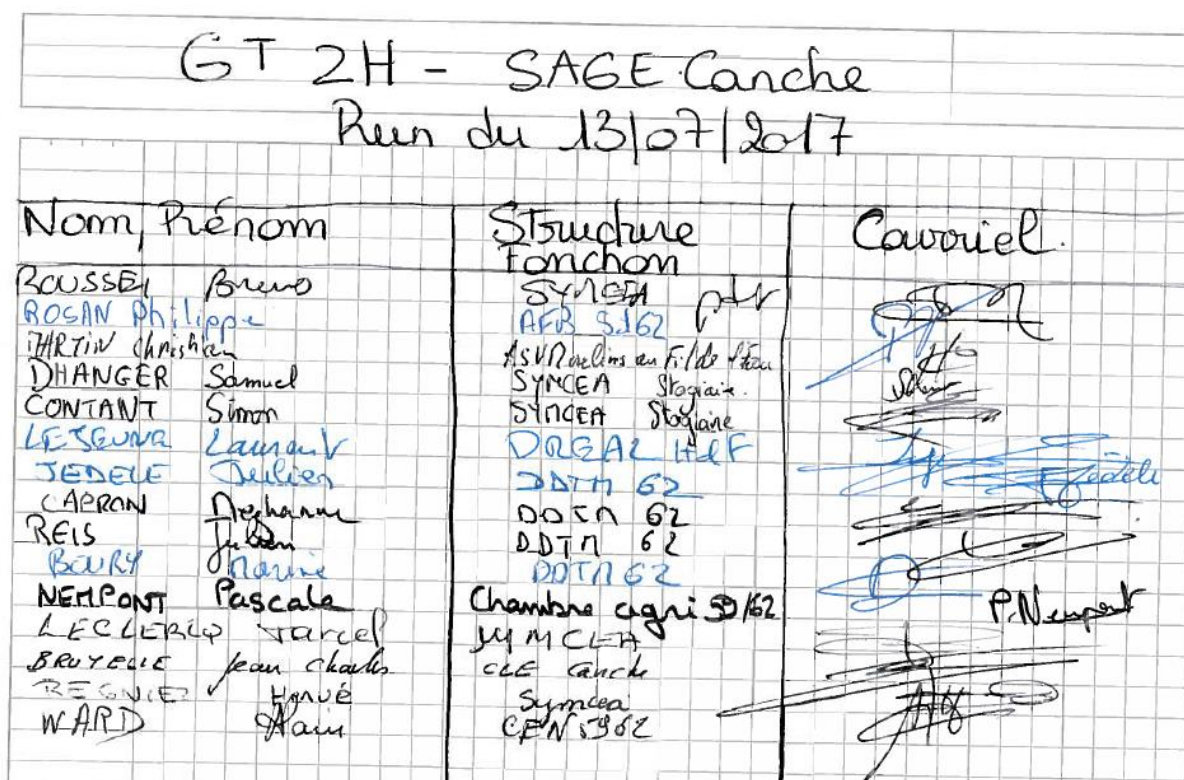 GT 2H - SAGE Canche
Reun du 13/07/2017
Nom, Prénom Structure Fonction Courriel.
ROUSSEL Bruno SYMCEA pdt
ROSAN Philippe AFB Sd62
MARTIN Christian ASV Moulins au Fil de l'eau
DHANGER Samuel SYMCEA Stagiaire.
CONTANT Simon SYMCEA Stagiaire
LEJEUNE Laurent DREAL HdF
JEDELE Julien DDTM 62 Jedele
CAPRON Stéphanie DDTM 62
REIS Julien DDTM 62
BOURY Marine DDTM 62
NEMPONT Pascale Chambre agri 59/62 P.Nempont
LECLERCQ Marcel SYMCEA
BRUYELLE Jean Charles CLE Canche
REGNIEZ Hervé Symcea
WARD Alain CEN 5962